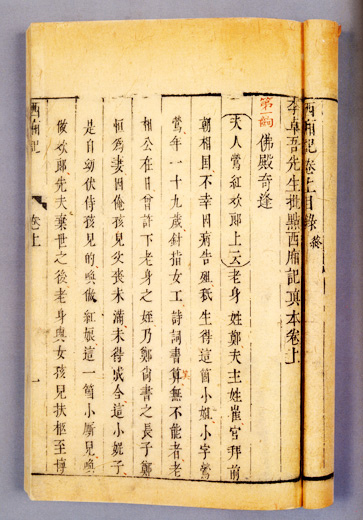 西廂記卷上目錄 終
李卓吾先生批點西廂記真本卷上
第一齣 佛殿奇逢
(夫人鶯紅歡郎上云)老身姓鄭夫主姓崔官拜前
朝相國不幸因病告殂秖生得這箇小姐小字鶯
鶯年一十九歲針指女工詩詞書算無不能者老
相公在日曾許下老身之姪乃鄭尚書之長子鄭
恒為妻因俺孩兒父喪未滿未得成合這小妮子
是自幼伏侍孩兒的喚做紅娘這一箇小廝兒喚
做歡郎先夫棄世之後老身與女孩兒扶柩至博
西廂記 卷上 一